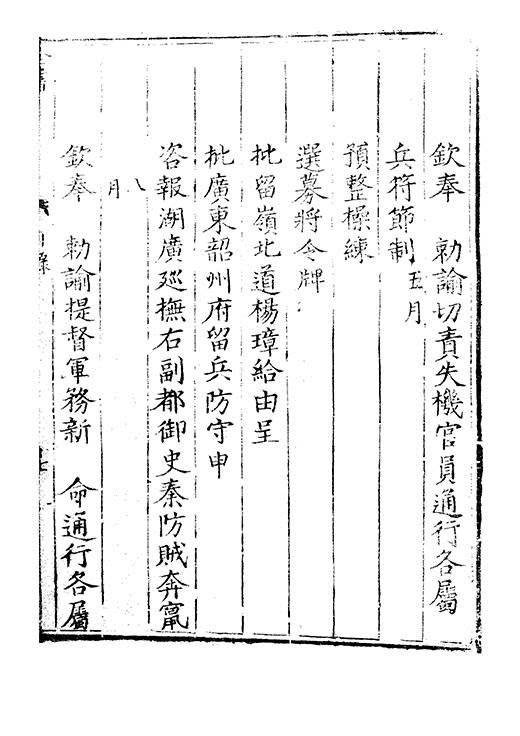 欽奉　勅諭切責失機官員通行各屬
兵符節制五月
預整操練
選募將令牌
批留嶺北道楊璋給由呈
批廣東韶州府留兵防守申
咨報湖廣廵撫右副都御史秦防賊奔竄
八月
欽奉　勅諭提督軍務新　命通行各屬
目錄